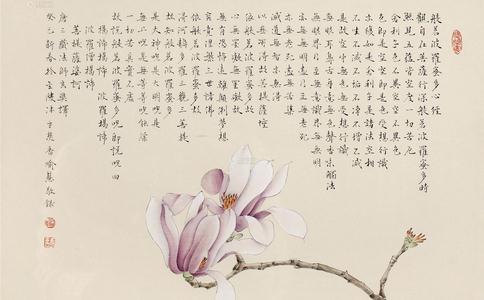 般若波羅蜜多心經
觀自在菩薩行深般若波羅蜜多時
照見五蘊皆空度一切苦厄
舍利子色不異空空不異色
色即是空空即是色受想行識
亦復如是舍利子是諸法空相
不生不滅不垢不淨不增不減
是故空中無色無受想行識
無眼耳鼻舌身意無色聲香味觸法
無眼界乃至無意識界無無明
亦無無明盡乃至無老死
亦無老死盡無苦集
滅道無智亦無得
以無所得故菩提薩埵
依般若波羅蜜多故
心無罣礙無罣礙故
無有恐怖遠離顛倒夢想
究竟涅槃三世諸佛
依般若波羅蜜多故
得阿耨多羅三藐三菩提
故知般若波羅蜜多
是大神咒是大明咒
是無上咒是無等等咒能除
一切苦真實不虛
故說般若波羅蜜多咒即說咒曰
揭諦揭諦 波羅揭諦
波羅僧揭諦
菩提薩婆訶
唐三藏法師玄奘譯
癸巳新春於沐手焚香喻慧敬錄